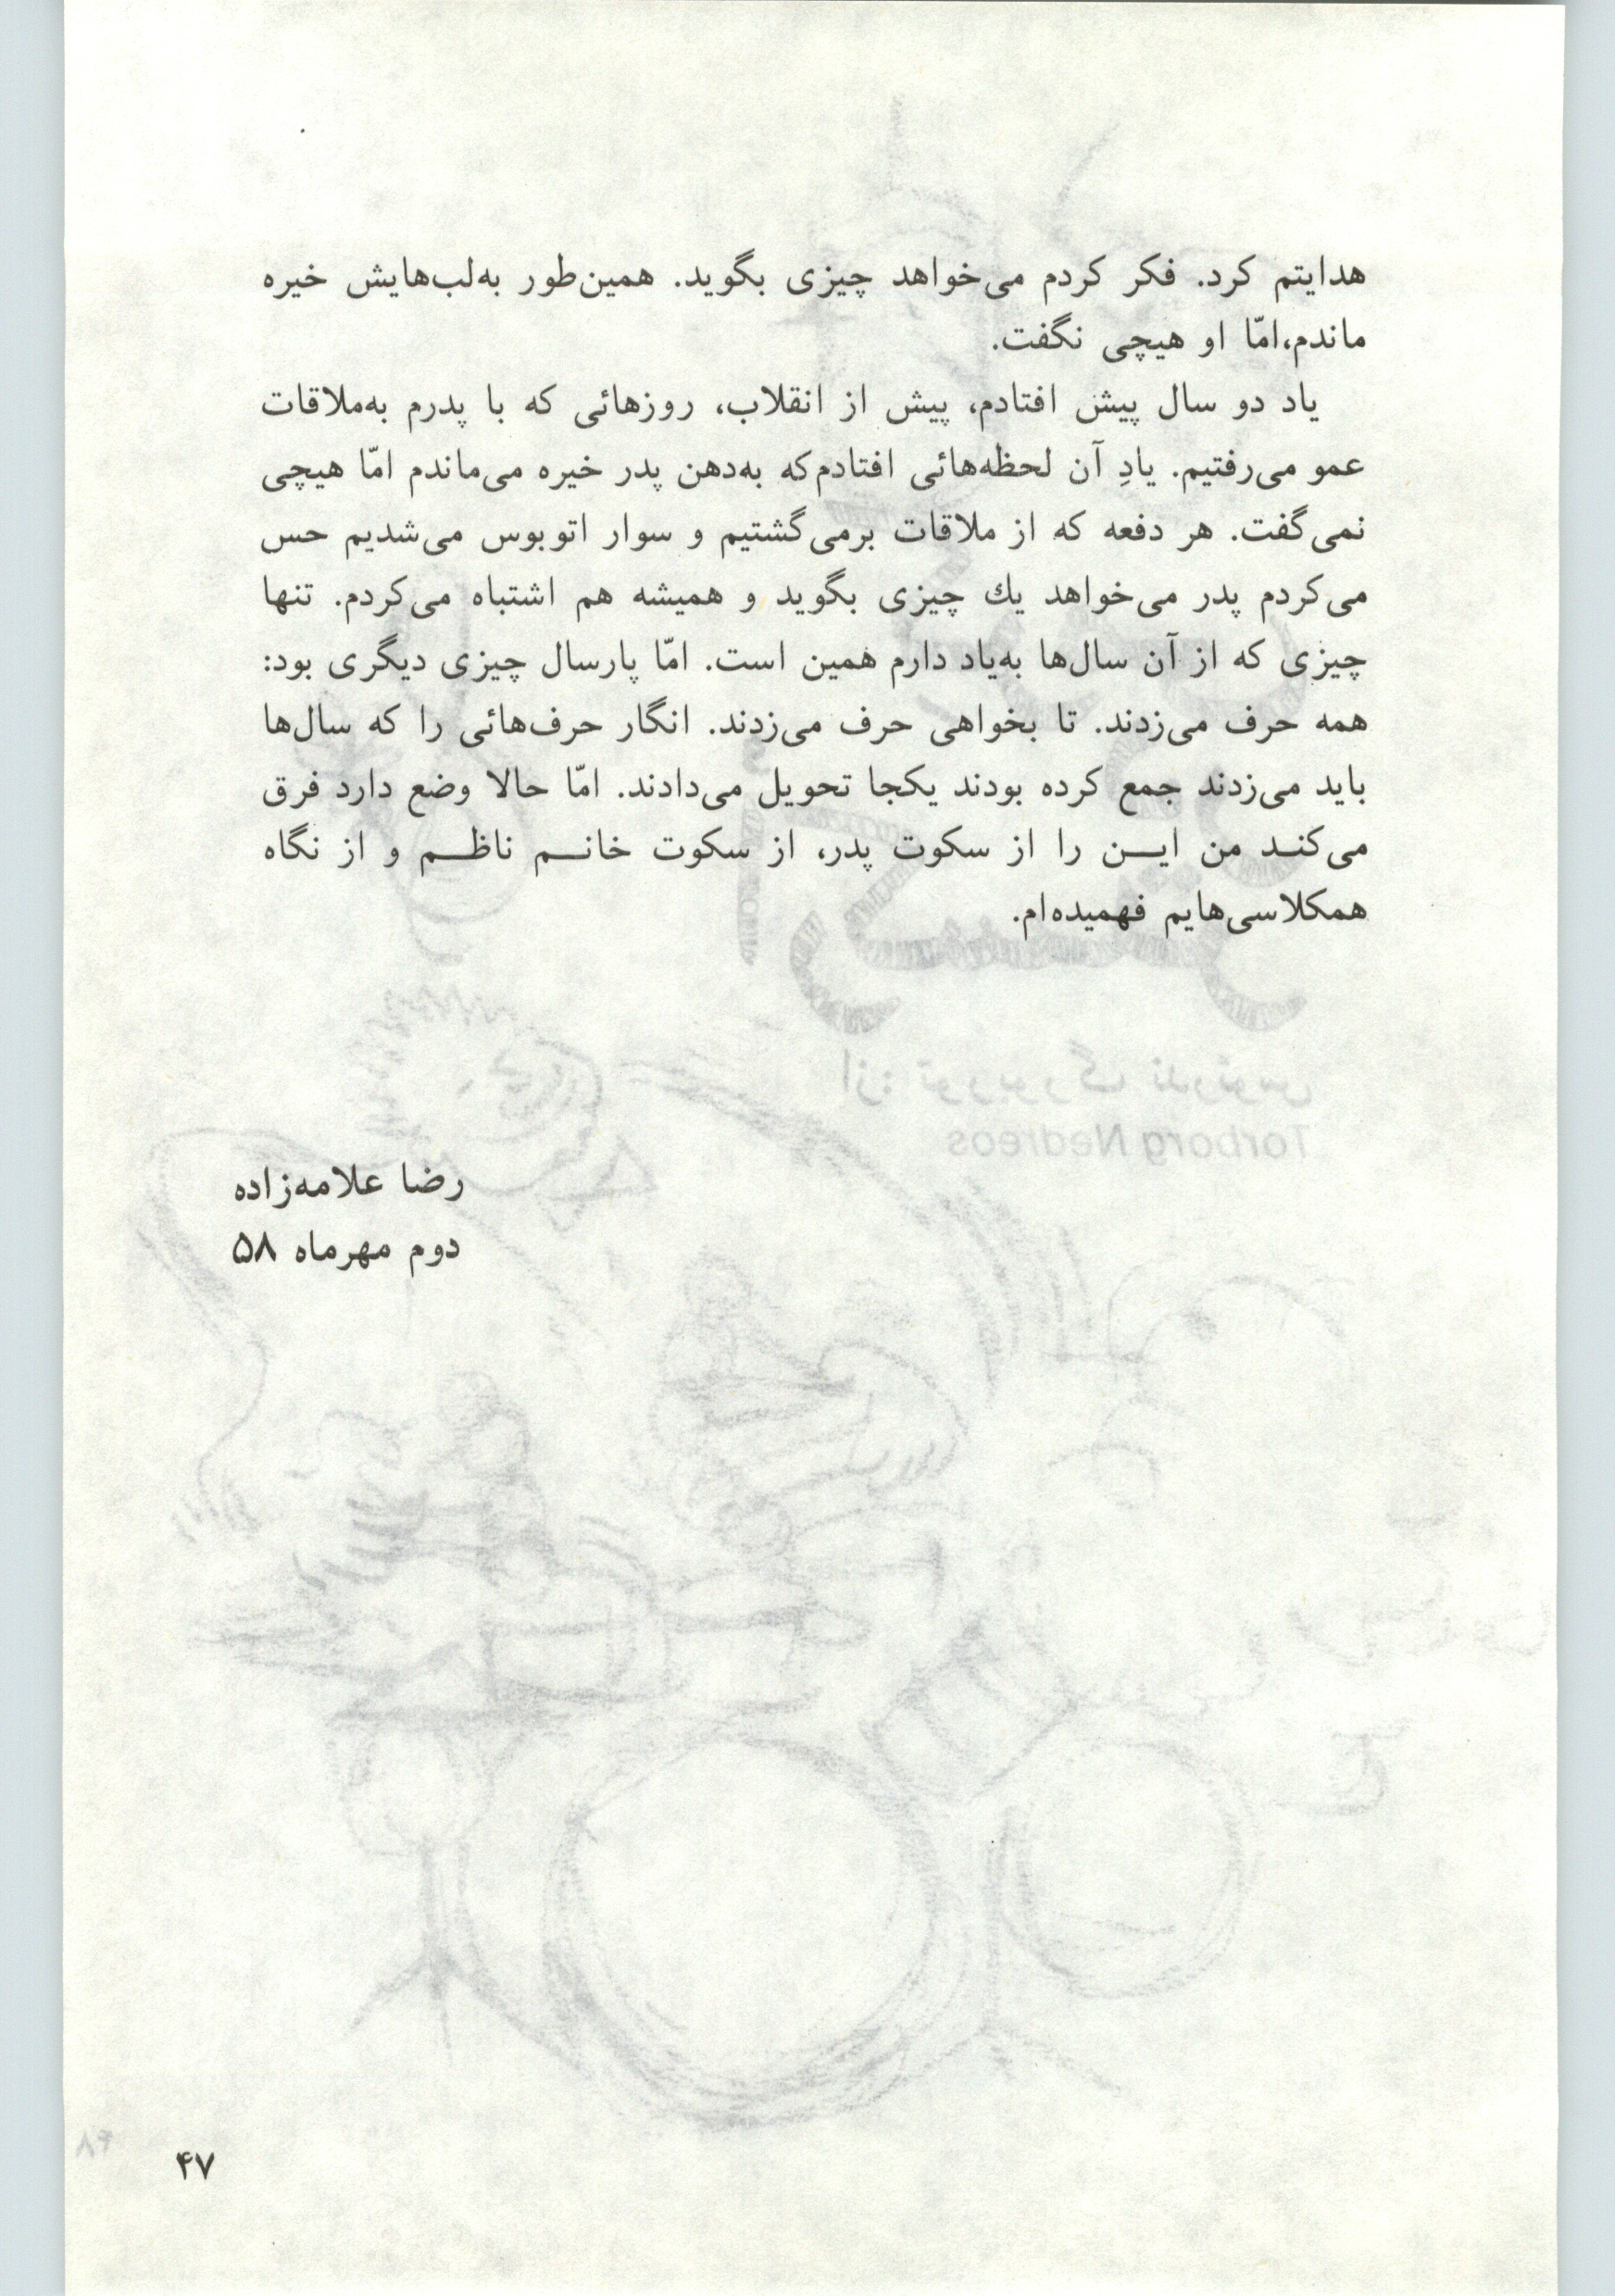 هدایتم کرد. فکر کردم می‌خواهد چیزی بگوید. همین‌طور به‌لب‌هایش خیره
ماندم،امّا او هیچی نگفت.
یاد دو سال پیش افتادم، پیش از انقلاب، روزهائی که با پدرم به‌ملاقات
عمو می‌رفتیم. یادِ آن لحظه‌هائی افتادم‌که به‌دهن پدر خیره می‌ماندم امّا هیچی
نمی‌گفت. هر دفعه که از ملاقات برمی‌گشتیم و سوار اتوبوس می‌شدیم حس
می‌کردم پدر می‌خواهد یك چیزی بگوید و همیشه هم اشتباه می‌کردم. تنها
چیزی که از آن سال‌ها به‌یاد دارم همین است. امّا پارسال چیزی دیگری بود:
همه حرف می‌زدند. تا بخواهی حرف می‌زدند. انگار حرف‌هائی را که سال‌ها
باید می‌زدند جمع کرده بودند یکجا تحویل می‌دادند. امّا حالا وضع دارد فرق
می‌کنـد من ایـــن را از سکوت پدر، از سکوت خانـــم ناظـــم و از نگاه
همکلاسی‌هایم فهمیده‌ام.
از: توربورگ ندرئوس
Torborg Nedreos
رضا علامه‌زاده
دوم مهرماه ۵۸
۴۸
۴۷